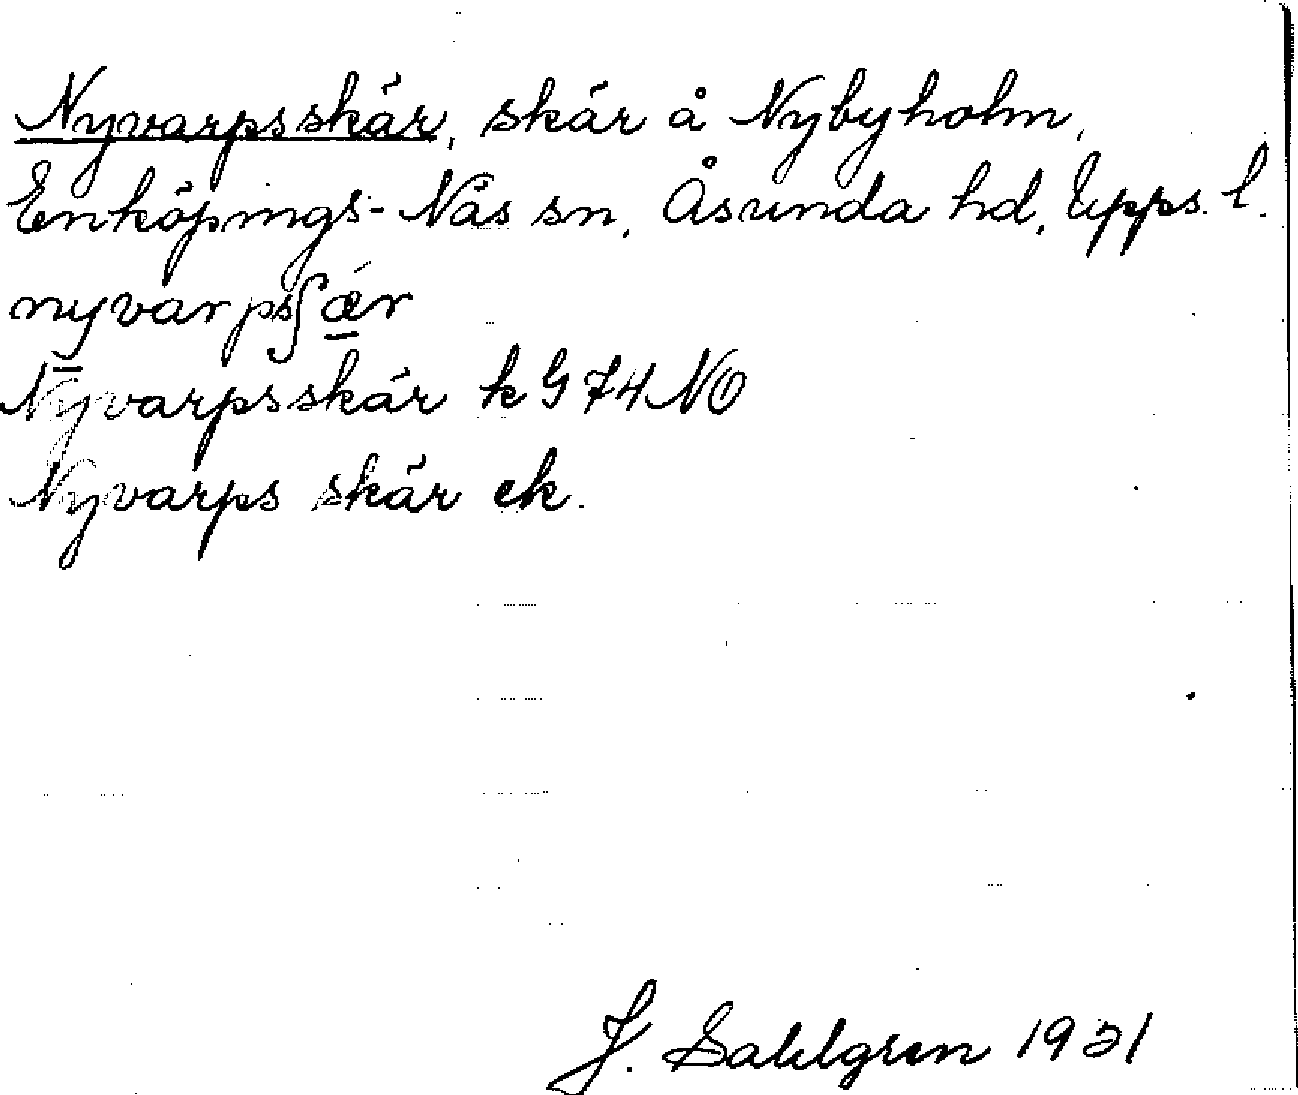 Nyvarpsskär, skär å Nybyholm,
Enköpings-Näs sn, Åsunda hd, Upps. l.
nyvarpsʃǽ̲r
Nyvarpsskär k G 74 NO
Nyvarps skär ek.
J. Sahlgren 1931